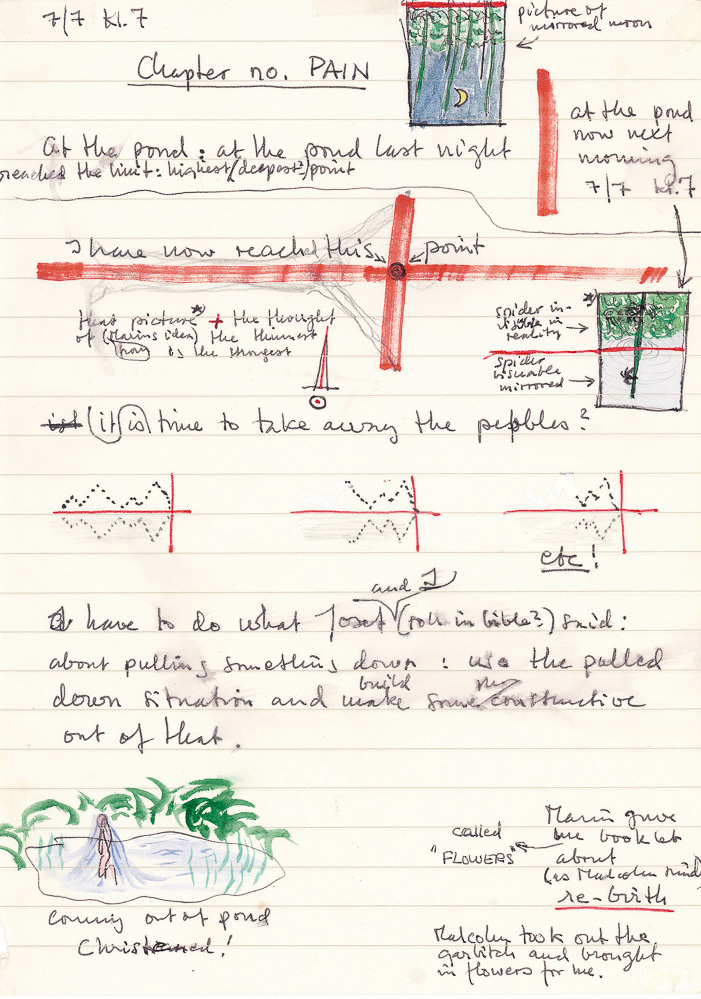 7/7 Kl. 7
picture of
mirrored moon
Chapter no. PAIN
at the pond
now next
morning
7/7 kl. 7
At the pond : at the pond last night
reached the limit: highest/deepest? point
I have now reached this point
that picture *) + the thought
of (Marins idea) the thinnest
is the strongest
*)
spider in-
visible in
reality
spider
visuable
mirrored
ist (it is) time to take away the pepbles?
etc!
and I
have to do what Josef (roll in bible?) said:
about pulling something down : use the pulled
down situation and make some constructive
build
out of that.
coming out of pond
Christened!
called
"FLOWERS"
Marin gave
me booklet
about
(as Malcolm
re-birth
Malcolm took out the
garbitch and brought
in flowers for me.